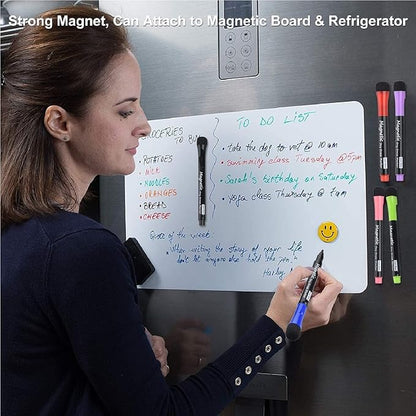 Strong Magnet, Can Attach to Magnetic Board & Refrigerator
GROCERIES
TO BUY
POTATOES
MILK
NOODLES
ORANGES
BREAD
CHEESE
TO DO LIST
• Take the dog to vet @ 10 am
• Swimming class Tuesday @ 5pm
• Sarah's birthday on Saturday
• Yoga class Thursday @ 7am
Quote of the week:
"When writing the story of your life
don't let anyone else hold the pen."
Harley
Magnetic
Magnetic
Magnetic
Magnetic
Magnetic